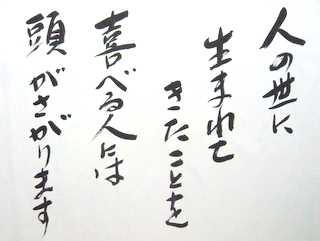 人の世に
生まれて
きたことを
喜べる人には
頭がさがります